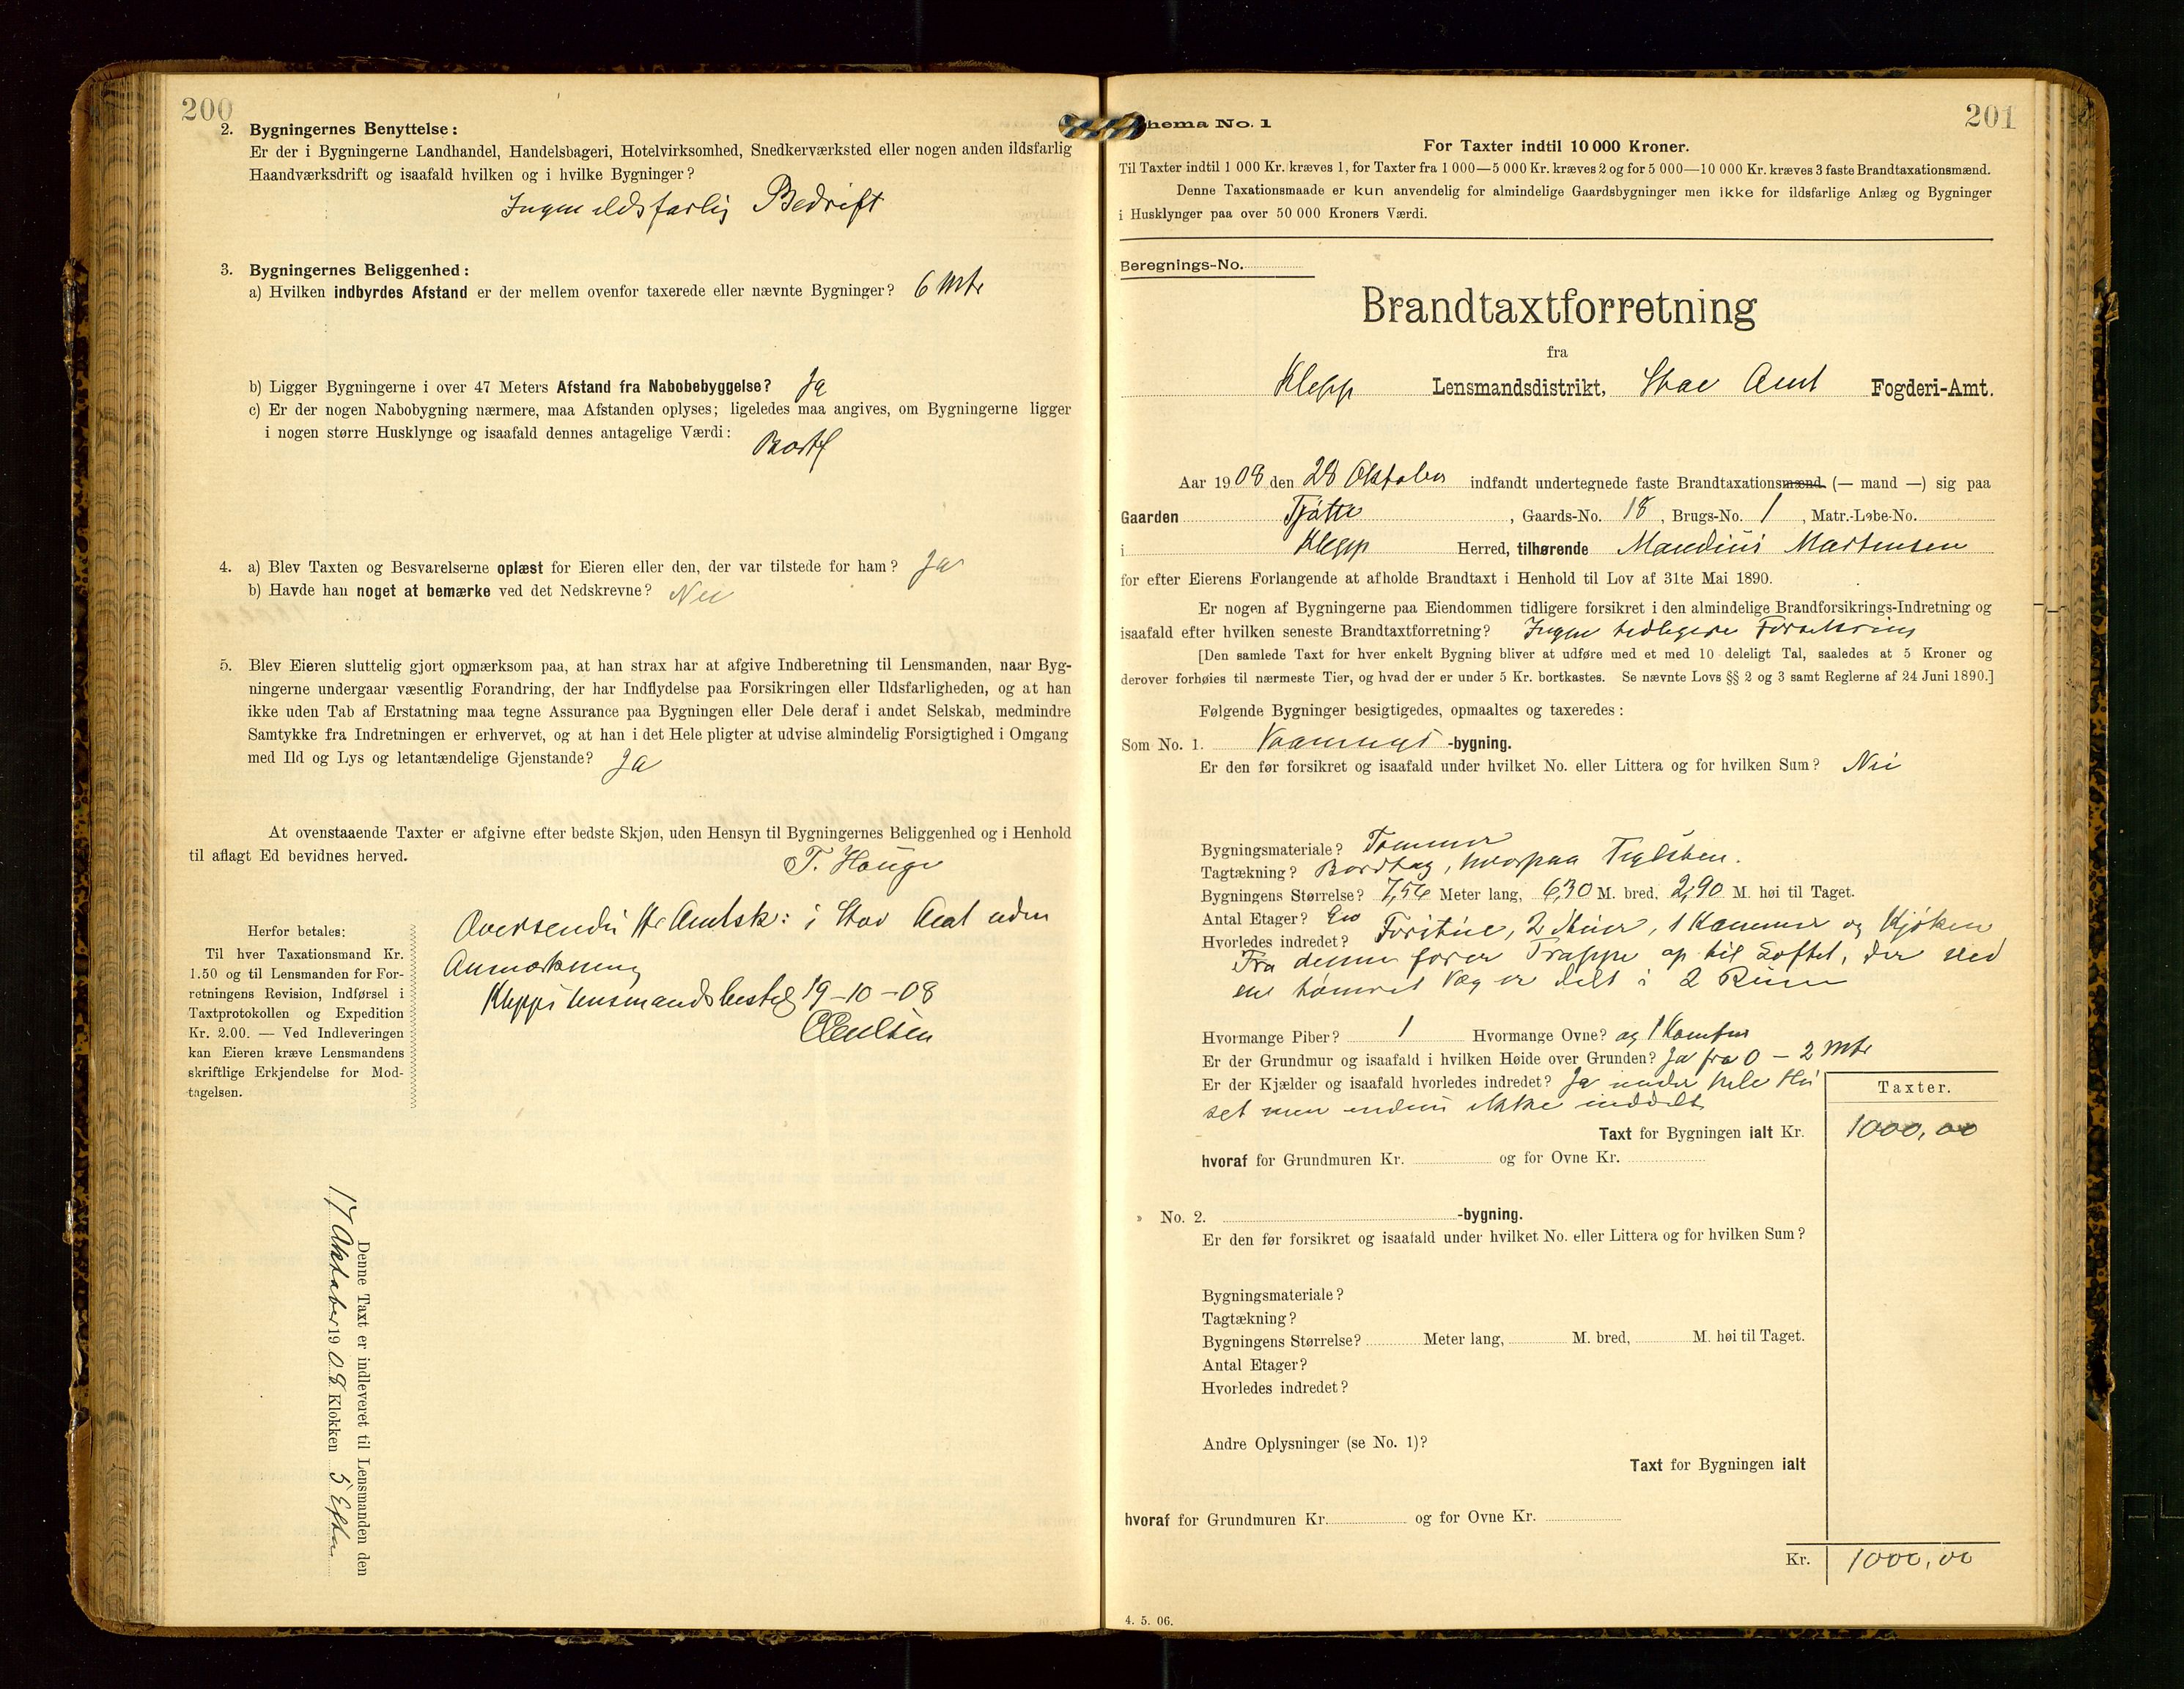 200
2. Bygningernes Benyttelse:
Er der i Bygningerne Landhandel, Handelsbageri, Hotelvirksomhed, Snedkerværksted eller nogen anden ildsfarlig
Haandværksdrift og isaafald hvilken og i hvilke Bygninger?
Ingen ildsfarlig Bedrift
3. Bygningernes Beliggenhed:
a) Hvilken indbyrdes Afstand er der mellem ovenfor taxerede eller nævnte Bygninger? 6 Mtr
b) Ligger Bygningerne i over 47 Meters Afstand fra Nabobebyggelse? Ja
c) Er der nogen Nabobygning nærmere, maa Afstanden oplyses; ligeledes maa angives, om Bygningerne ligger
i nogen større Husklynge og isaafald dennes antagelige Værdi:
Bortf
4. a) Blev Taxten og Besvarelserne oplæst for Eieren eller den, der var tilstede for ham? Ja
b) Havde han noget at bemærke ved det Nedskrevne? Nei
5. Blev Eieren sluttelig gjort opmærksom paa, at han strax har at afgive Indberetning til Lensmanden, naar Byg-
ningerne undergaar væsentlig Forandring, der har Indflydelse paa Forsikringen eller Ildsfarligheden, og at han
ikke uden Tab af Erstatning maa tegne Assurance paa Bygningen eller Dele deraf i andet Selskab, medmindre
Samtykke fra Indretningen er erhvervet, og at han i det Hele pligter at udvise almindelig Forsigtighed i Omgang
med Ild og Lys og letantændelige Gjenstande? Ja
At ovenstaaende Taxter er afgivne efter bedste Skjøn, uden Hensyn til Bygningernes Beliggenhed og i Henhold
til aflagt Ed bevidnes herved.
T. Hauge
Oversendes Hr Amtsk: i Stav Amt uden
Anmærkning
Klepps lensmandsbestil 19-10-08
Herfor betales:
Til hver Taxationsmand Kr.
1.50 og til Lensmanden for For-
retningens Revision, Indførsel i
Taxtprotokollen og Expedition
Kr. 2.00. — Ved Indleveringen
kan Eieren kræve Lensmandens
skriftlige Erkjendelse for Mod-
tagelsen.
Denne Taxt er indleveret til Lensmanden den
17 Oktober 1908 Klokken 5 Efterm
201
hema No. 1
For Taxter indtil 10 000 Kroner.
Til Taxter indtil 1 000 Kr. kræves 1, for Taxter fra 1 000—5 000 Kr. kræves 2 og for 5 000—10 000 Kr. kræves 3 faste Brandtaxationsmænd.
Denne Taxationsmaade er kun anvendelig for almindelige Gaardsbygninger men ikke for ildsfarlige Anlæg og Bygninger
i Husklynger paa over 50 000 Kroners Værdi.
Beregnings-No.
Brandtaxtforretning
fra
Klepp Lensmandsdistrikt, Stav Amt Fogderi-Amt.
Aar 1908 den 28 Oktober indfandt undertegnede faste Brandtaxationsmænd (— mand —) sig paa
Gaarden Tjøtte, Gaards-No. 18, Brugs-No. 1, Matr.-Løbe-No.
i Klepp Herred, tilhørende Maudius Martensen
for efter Eierens Forlangende at afholde Brandtaxt i Henhold til Lov af 31te Mai 1890.
Er nogen af Bygningerne paa Eiendommen tidligere forsikret i den almindelige Brandforsikrings-Indretning og
isaafald efter hvilken seneste Brandtaxtforretning? Ingen tidligere Forsikring
[Den samlede Taxt for hver enkelt Bygning bliver at udføre med et med 10 deleligt Tal, saaledes at 5 Kroner og
derover forhøies til nærmeste Tier, og hvad der er under 5 Kr. bortkastes. Se nævnte Lovs §§ 2 og 3 samt Reglerne af 24 Juni 1890.]
Følgende Bygninger besigtigedes, opmaaltes og taxeredes:
Som No. 1. Vaanings-bygning.
Er den før forsikret og isaafald under hvilket No. eller Littera og for hvilken Sum? Nei
Bygningsmateriale? Tømmer
Tagtækning? Bordtag, hvorpaa Teglsten.
Bygningens Størrelse? 7,56 Meter lang, 6,30 M. bred, 2,90 M. høi til Taget.
Antal Etager? En
Hvorledes indredet? Forstue, 2 Stuer, 1 Kammer og Kjøken
Fra denne fører Trappe op til Loftet, der ved
en tømret Væg er delt i 2 Rum
Hvormange Piber? 1 Hvormange Ovne? og 1 Komfur
Er der Grundmur og isaafald i hvilken Høide over Grunden? Ja fra 0 - 2 Mtr
Er der Kjælder og isaafald hvorledes indredet? Ja under hele Hu
set men endnu ikke inddelt
Taxter.
Taxt for Bygningen ialt Kr. 1000,00
hvoraf for Grundmuren Kr. og for Ovne Kr.
» No. 2. -bygning.
Er den før forsikret og isaafald under hvilket No. eller Littera og for hvilken Sum?
Bygningsmateriale?
Tagtækning?
Bygningens Størrelse? Meter lang, M. bred, M. høi til Taget.
Antal Etager?
Hvorledes indredet?
Andre Oplysninger (se No. 1)?
Taxt for Bygningen ialt
hvoraf for Grundmuren Kr. og for Ovne Kr.
Kr. 1000,00
4. 5. 06.